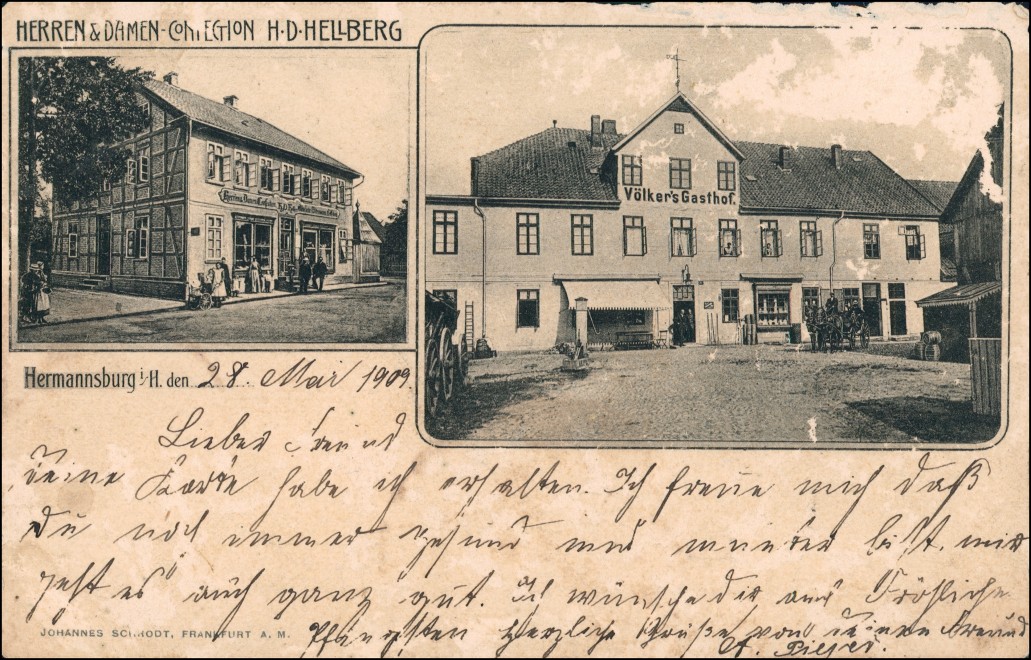 HERREN & DAMEN-CONFECTION H·D·HELLBERG
Völker's Gasthof.
Hermannsburg i/H. den 28. Mai 1909.
Lieber Freund
Deine Karte habe ich erhalten. Ich freue mich daß
du noch immer gesund und munter bist. mir
geht es auch ganz gut. Ich wünsche dir auch Fröhliche
Pfingsten Herzliche Grüße von deinen Freund
JOHANNES SCHMIDT, FRANKFURT A. M.